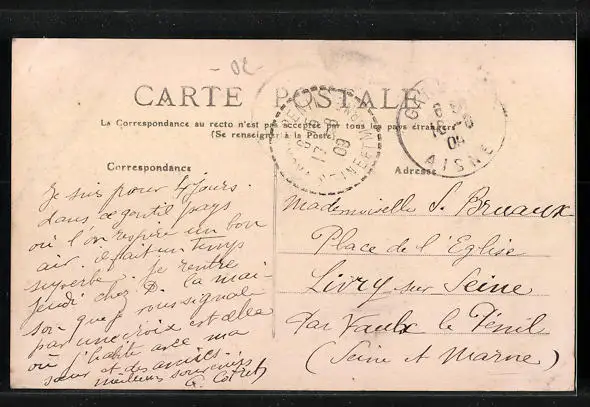 02
CARTE POSTALE
La Correspondance au recto n'est pas acceptée par tous les pays étrangers
(Se renseigner à la Poste)
Correspondance
Je suis pour 4 jours
dans ce gentil pays
où l'on respire un bon
air. il fait un temps
superbe. Je rentre
jeudi chez D. la mai-
son que je vous signale
par une croix est celle
où j'habite avec ma
sœur et des amies.
meilleurs souvenirs
G.
Adresse
Mademoiselle S. Bruaux
Place de l'Eglise
Livry sur Seine
Par Vaulx le Pénil
(Seine et Marne)
AISNE